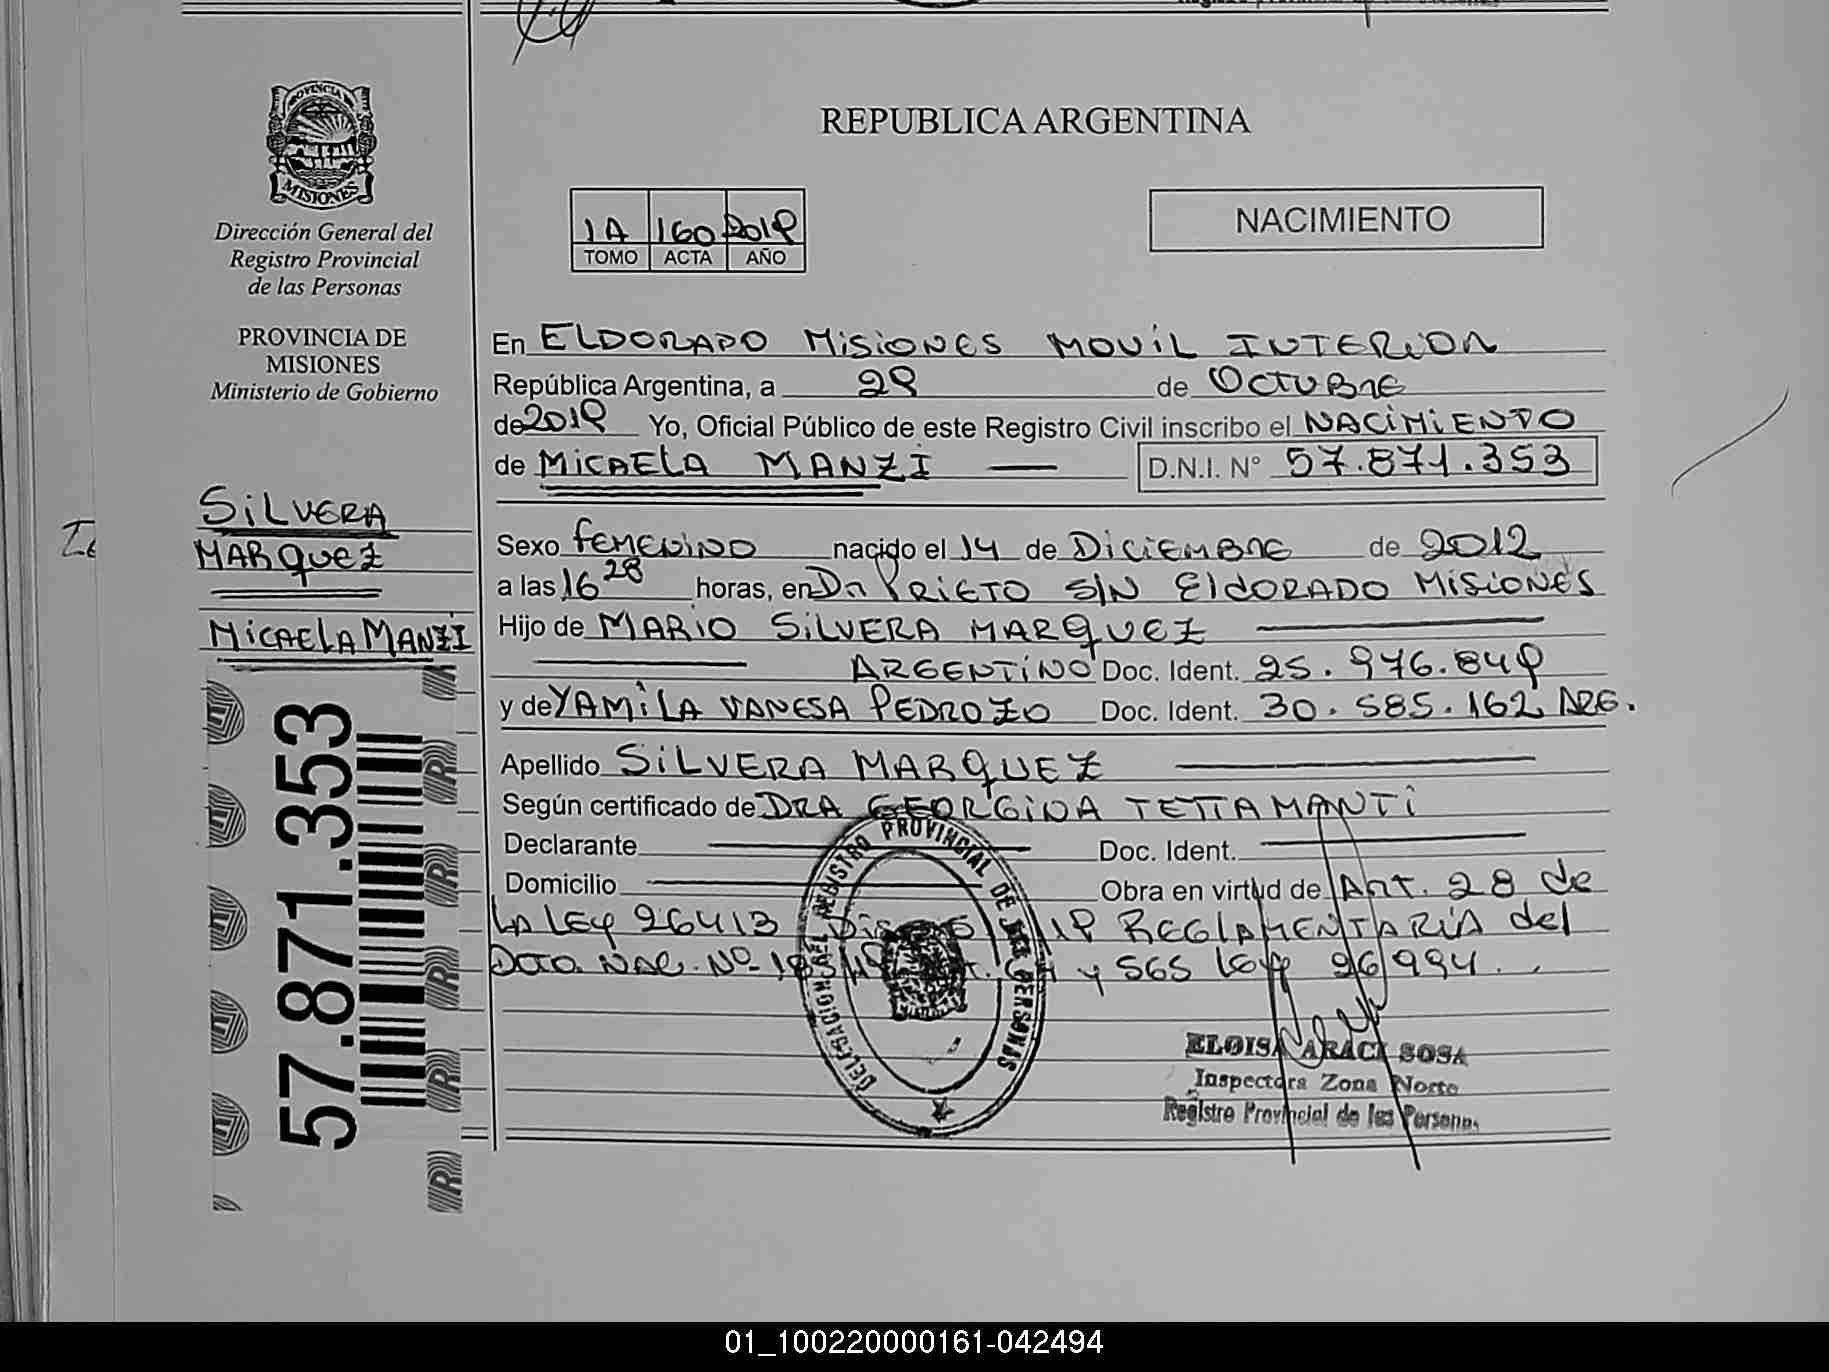 REPUBLICA ARGENTINA
PROVINCIA DE
MISIONES
Dirección General del
Registro Provincial
de las Personas
PROVINCIA DE
MISIONES
Ministerio de Gobierno
1A 160 2019
TOMO ACTA AÑO
NACIMIENTO
En ELDORADO MISIONES MOVIL INTERIOR
República Argentina, a 29 de OCTUBRE
de 2019 Yo, Oficial Público de este Registro Civil inscribo el NACIMIENTO
de MICAELA MANZI D.N.I. N° 57.871.353
SILVERA
MARQUEZ
MICAELA MANZI
57.871.353
Sexo FEMENINO nacido el 14 de DICIEMBRE de 2012
a las 16 28 horas, en Dr PRIETO S/N ElDORADO MISIONES
Hijo de MARIO SILVERA MARQUEZ
ARGENTINO Doc. Ident. 25.976.849
y de YAMILA VANESA PEDROZO Doc. Ident. 30.585.162 ARG.
Apellido SILVERA MARQUEZ
Según certificado de DRA GEORGINA TETTAMANTI
Declarante Doc. Ident.
Domicilio Obra en virtud de Art. 28 de
LA LEY 26413 REGLAMENTARIA del
Dcto. Nac. Nº y SGS Ley 26994.
DELEGACION DEL REGISTRO PROVINCIAL DE LAS PERSONAS
ELOISA ARACI SOSA
Inspectora Zona Norte
Registro Provincial de las Personas
01_100220000161-042494